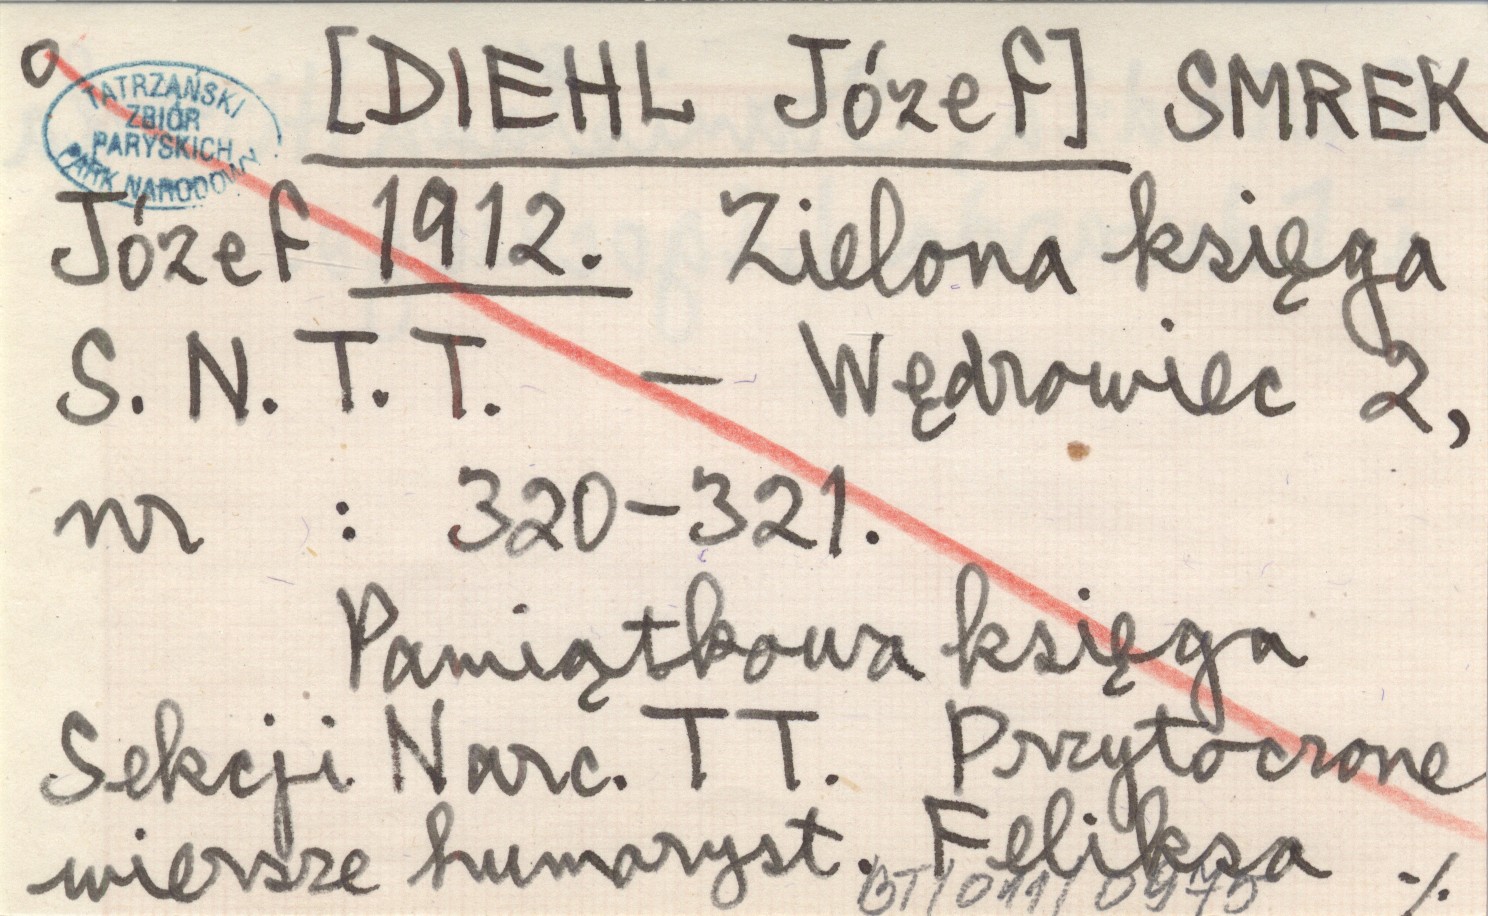 o
TATRZAŃSKI
ZBIÓR
PARYSKICH
PARK NARODOWY
[DIEHL Józef] SMREK
Józef 1912. Zielona księga
S. N. T. T. — Wędrowiec 2,
nr : 320-321.
Pamiątkowa księga
Sekcji Narc. TT. Przytoczone
wiersze humoryst. Feliksa ./.
BT/011/0975